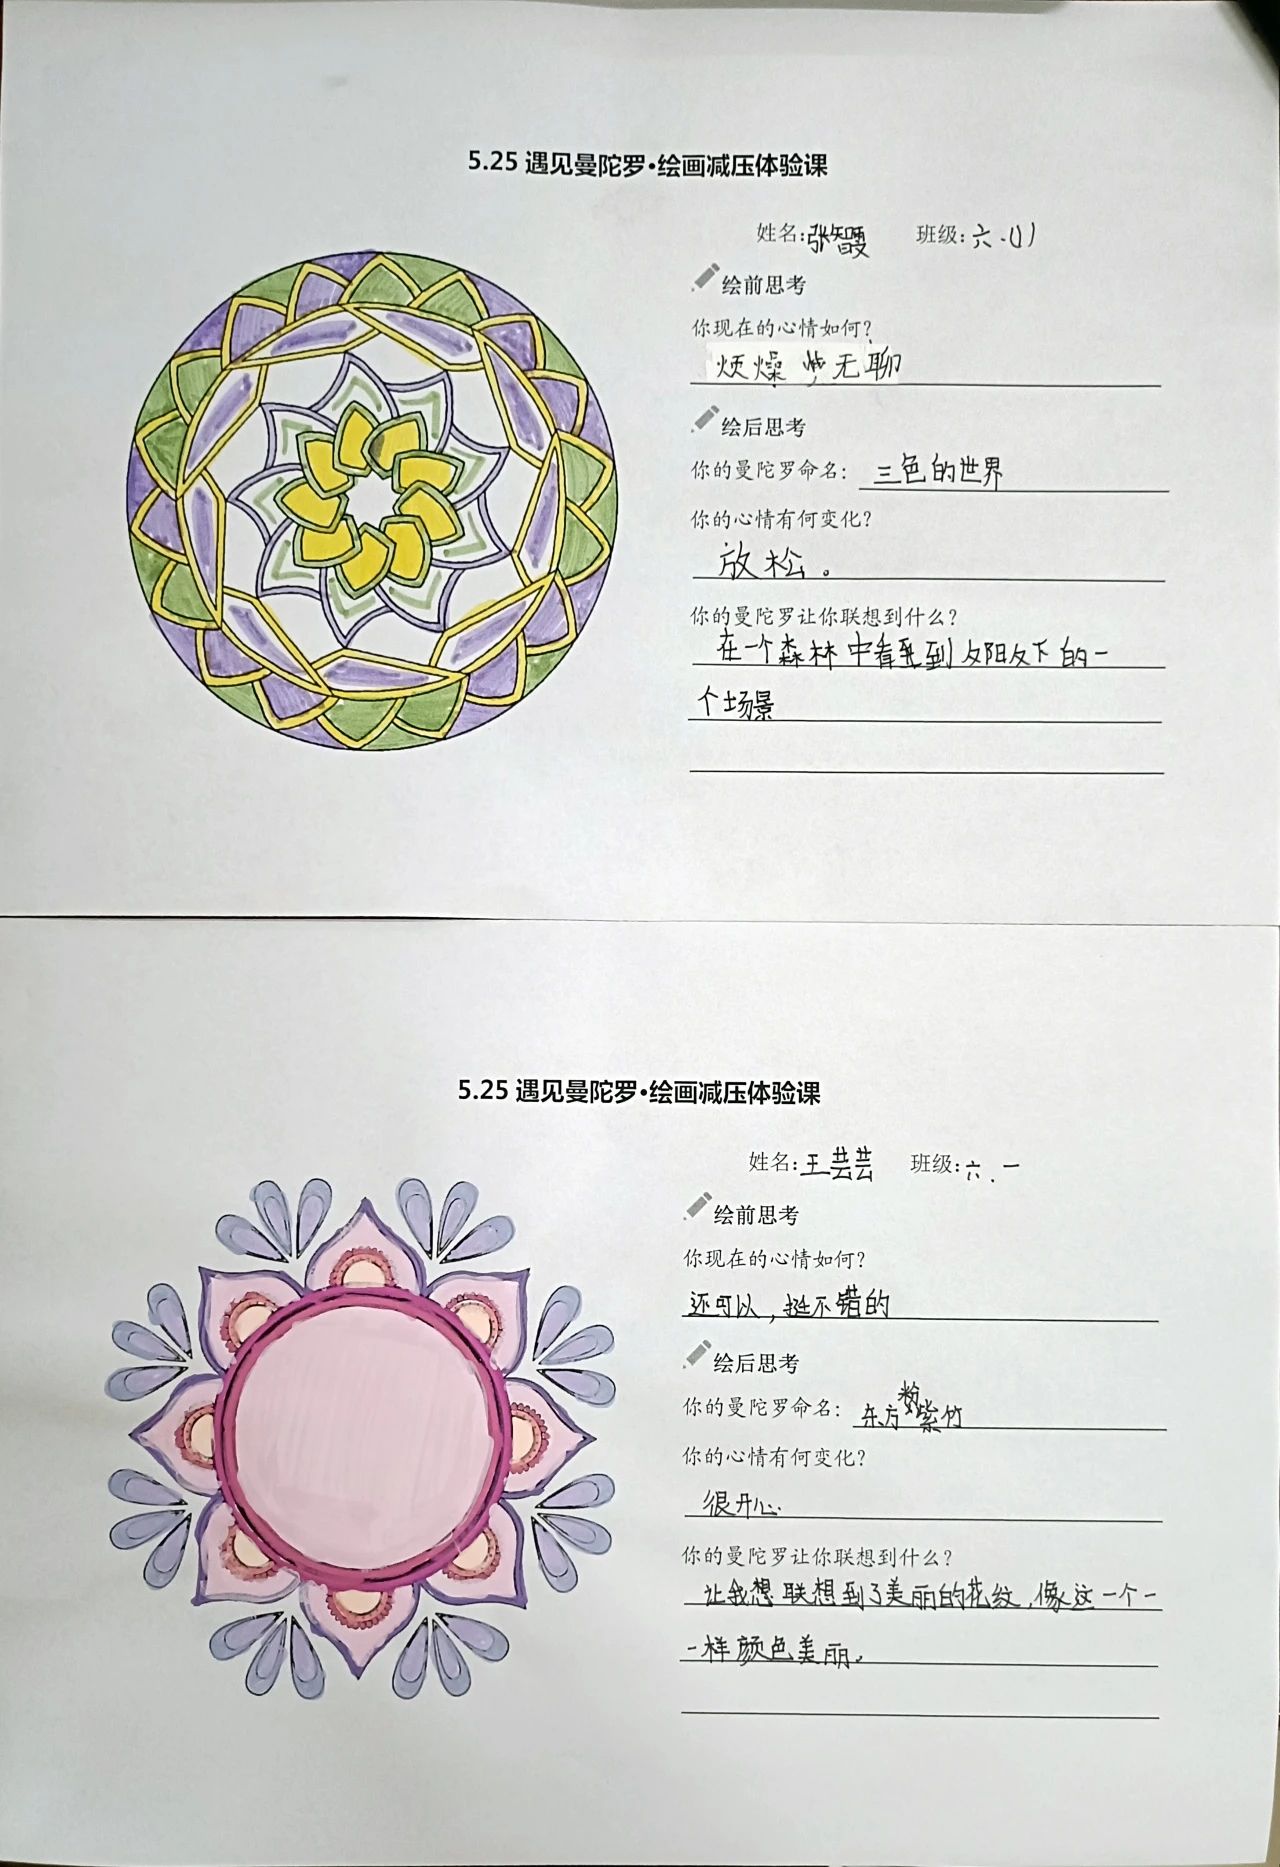 5.25 遇见曼陀罗•绘画减压体验课
姓名:张智 班级:六.(1)
绘前思考
你现在的心情如何?
烦燥 无聊
绘后思考
你的曼陀罗命名: 三色的世界
你的心情有何变化?
放松。
你的曼陀罗让你联想到什么?
在一个森林中看到夕阳下的一
个场景
5.25 遇见曼陀罗•绘画减压体验课
姓名:王芸芸 班级:六.一
绘前思考
你现在的心情如何?
还可以,挺不错的
绘后思考
你的曼陀罗命名: 东方紫竹
你的心情有何变化?
很开心.
你的曼陀罗让你联想到什么?
让我想联想到了美丽的花纹,像这一个一
一样颜色美丽。